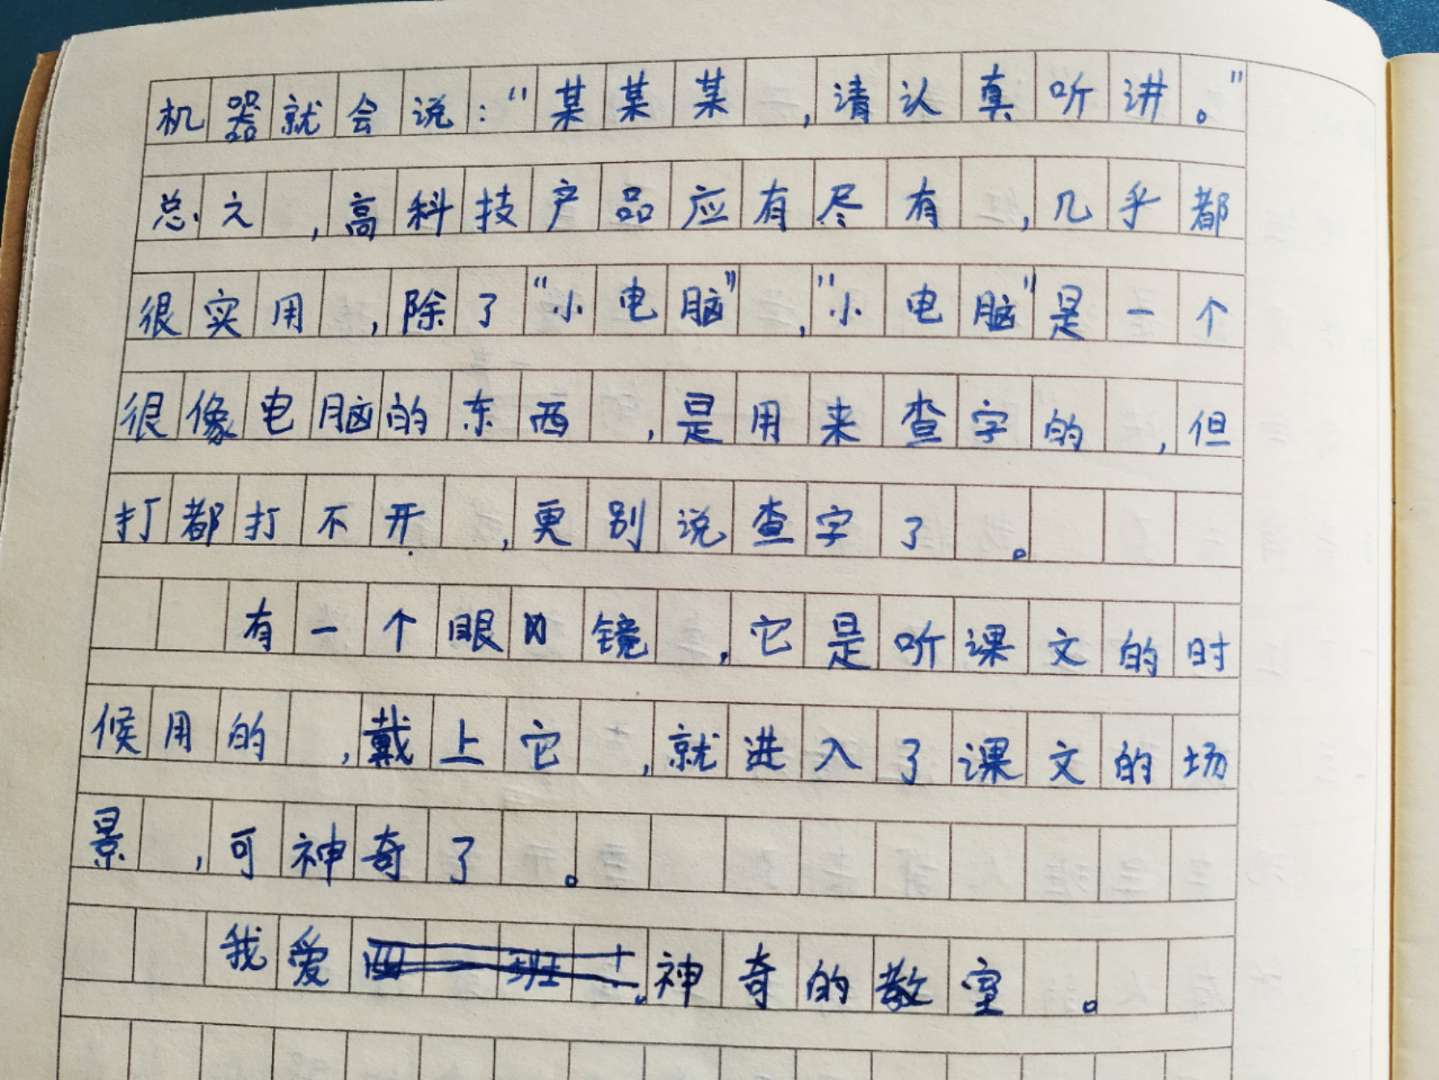 机器就会说:“某某某,请认真听讲。”
总之,高科技产品应有尽有,几乎都
很实用,除了“小电脑”,“小电脑”是一个
很像电脑的东西,是用来查字的,但
打都打不开,更别说查字了。
有一个眼镜,它是听课文的时
候用的,戴上它,就进入了课文的场
景,可神奇了。
我爱神奇的教室。